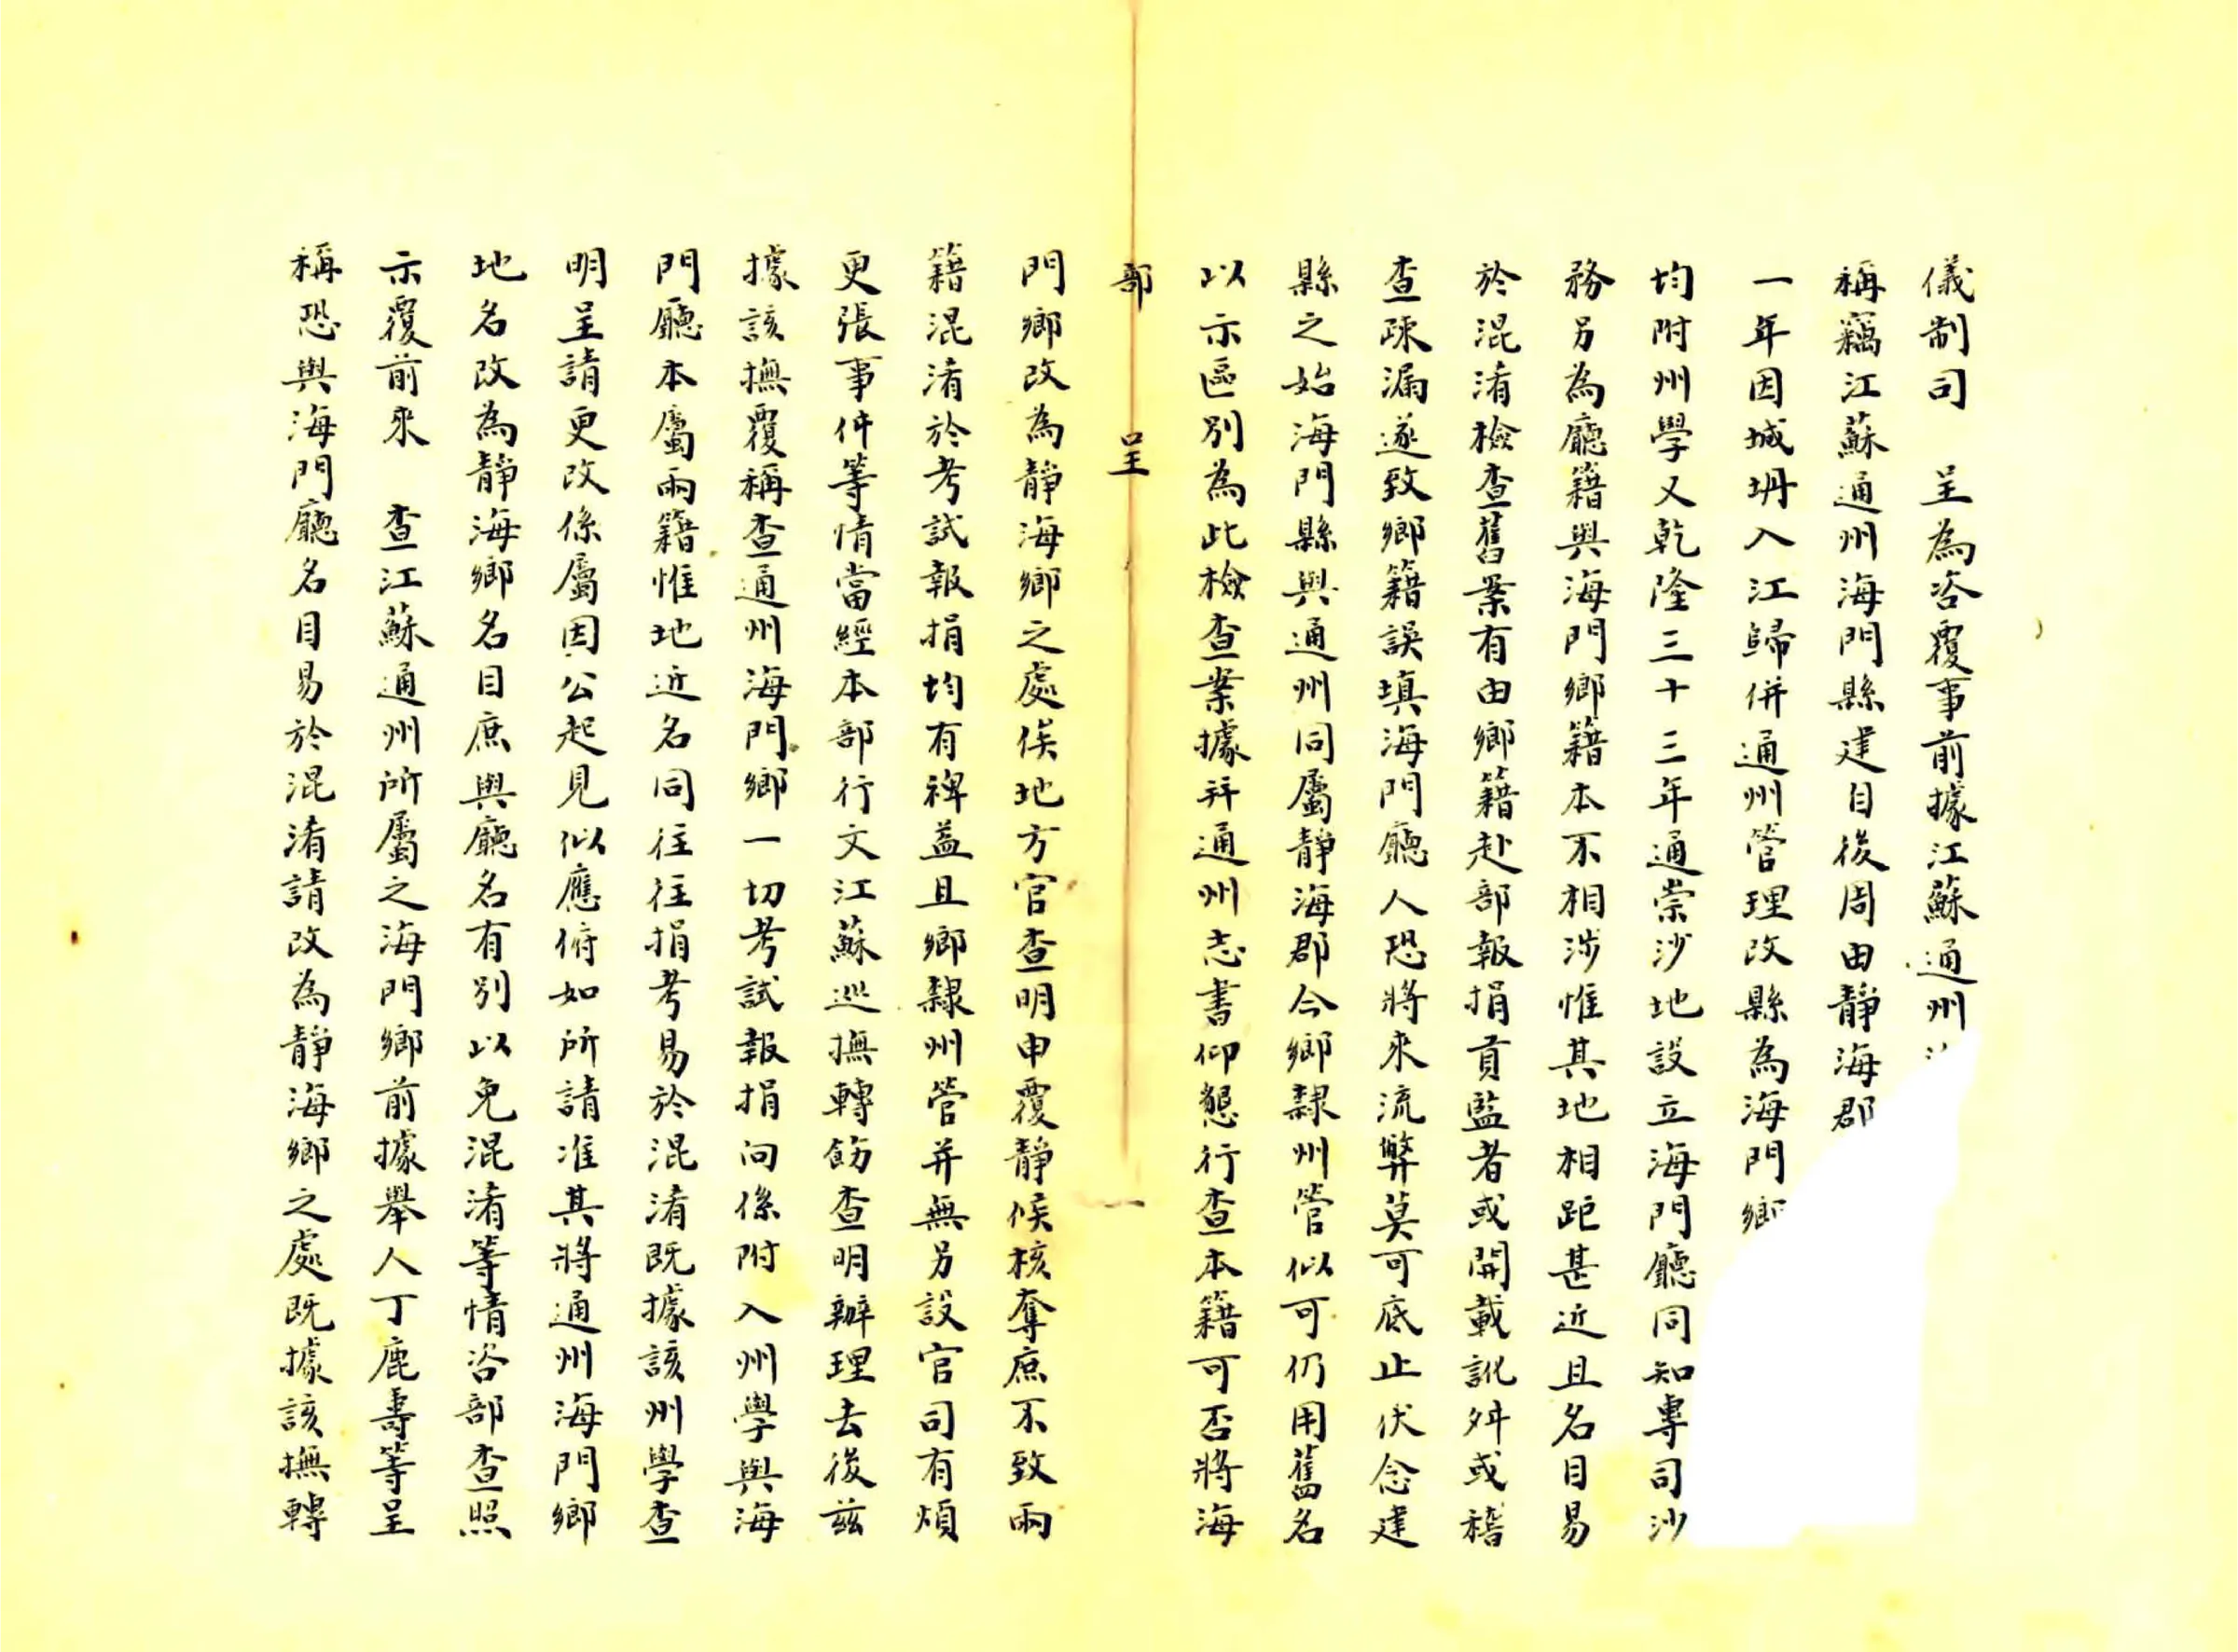 儀制司　呈為咨覆事前據江蘇通州
稱竊江蘇通州海門縣建自後周由靜海郡
一年因城坍入江歸併通州管理改縣為海門鄉
均附州學又乾隆三十三年通崇沙地設立海門廳同知專司沙
務另為廳籍與海門鄉籍本不相涉惟其地相距甚近且名目易
於混淆檢查舊案有由鄉籍赴部報捐貢監者或開載訛舛或稽
查疎漏遂致鄉籍誤填海門廳人恐將來流弊莫可底止伏念建
縣之始海門縣與通州同屬靜海郡今鄉隸州管似可仍用舊名
以示區別為此檢查案據并通州志書仰懇行查本籍可否將海
部　呈　一
門鄉改為靜海鄉之處俟地方官查明申覆靜候核奪庶不致兩
籍混淆於考試報捐均有裨益且鄉隸州管并無另設官司有煩
更張事件等情當經本部行文江蘇巡撫轉飭查明辦理去後茲
據該撫覆稱查通州海門鄉一切考試報捐向係附入州學與海
門廳本屬兩籍惟地近名同往往捐考易於混淆既據該州學查
明呈請更改係屬因公起見似應俯如所請准其將通州海門鄉
地名改為靜海鄉名目庶與廳名有別以免混淆等情咨部查照
示覆前來　查江蘇通州所屬之海門鄉前據舉人丁鹿壽等呈
稱恐與海門廳名目易於混淆請改為靜海鄉之處既據該撫轉